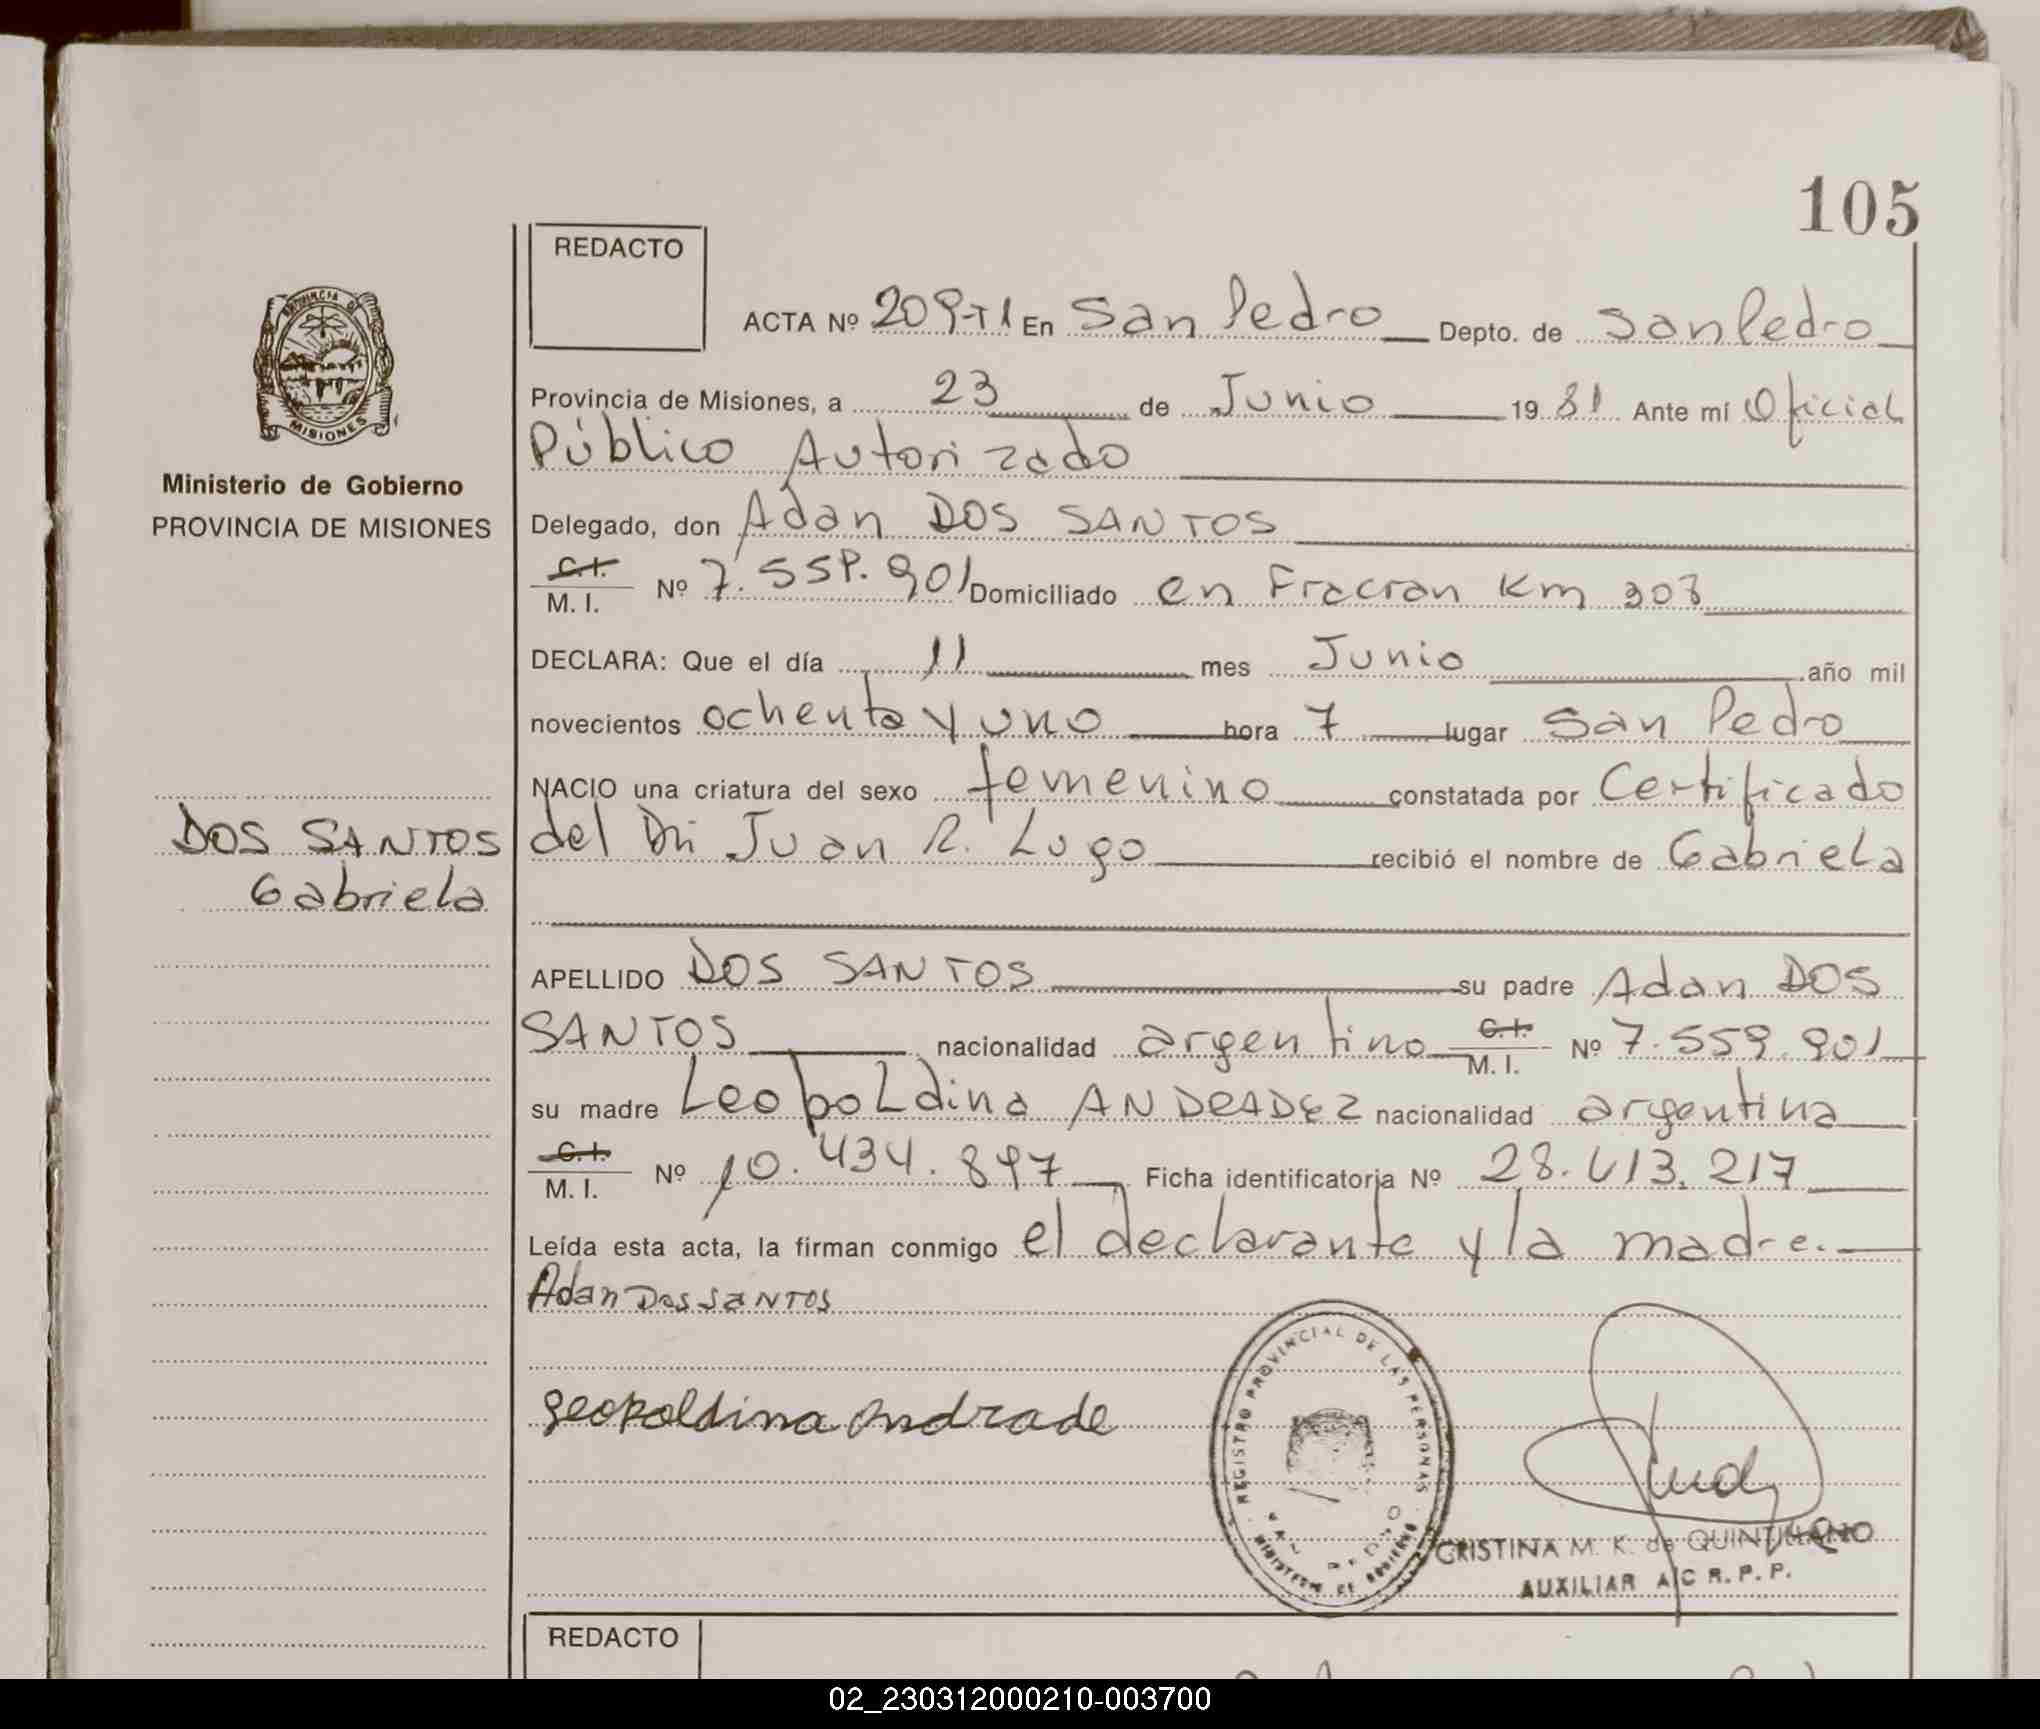 105
REDACTO
ACTA Nº 209-T1 En San Pedro Depto. de San Pedro
PROVINCIA DE
MISIONES
Provincia de Misiones, a 23 de Junio 1981 Ante mí Oficial
Público Autorizado
Ministerio de Gobierno
PROVINCIA DE MISIONES
Delegado, don Adan DOS SANTOS
C. I.
M. I. Nº 7.559.901 Domiciliado en Fracran Km 303
DECLARA: Que el día 11 mes Junio año mil
novecientos ochenta y uno hora 7 lugar San Pedro
NACIO una criatura del sexo femenino constatada por Certificado
DOS SANTOS
Gabriela
del Dr. Juan R. Lugo recibió el nombre de Gabriela
APELLIDO DOS SANTOS su padre Adan DOS
SANTOS nacionalidad argentino C. I. M. I. Nº 7.559.901
su madre Leopoldina ANDRADEZ nacionalidad argentina
C. I.
M. I. Nº 10.434.897 Ficha identificatoria Nº 28.413.217
Leída esta acta, la firman conmigo el declarante y la madre.
Adan Dos SANTOS
Leopoldina Andrade
REGISTRO PROVINCIAL DE LAS PERSONAS
SAN PEDRO
MINISTERIO DE GOBIERNO
CRISTINA M. K. de QUINTILIANO
AUXILIAR A/C R. P. P.
REDACTO
02_230312000210-003700